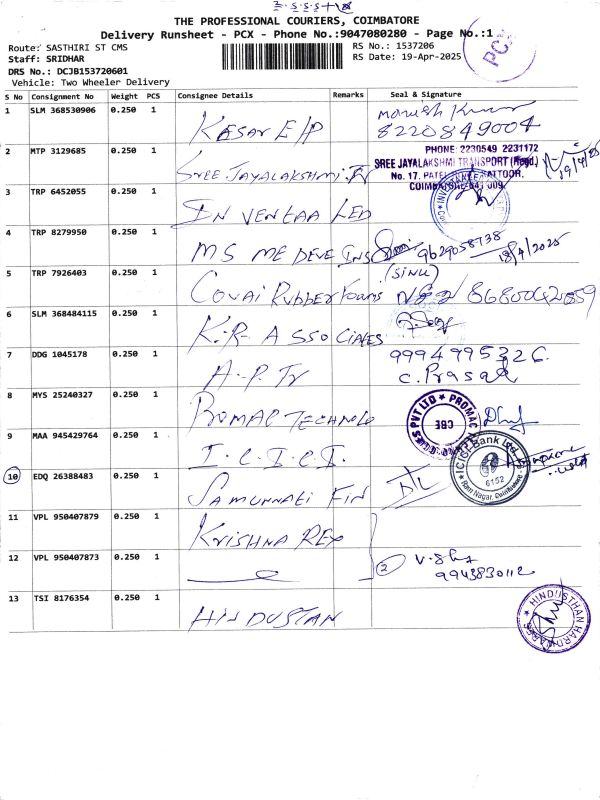 THE PROFESSIONAL COURIERS, COIMBATORE
Delivery Runsheet - PCX - Phone No.:9047080280 - Page No.:1
PCX
Route: SASTHIRI ST CMS
RS No.: 1537206
Staff: SRIDHAR
RS Date: 19-Apr-2025
DRS No.: DCJB153720601
Vehicle: Two Wheeler Delivery
S No Consignment No Weight PCS Consignee Details Remarks Seal & Signature
1 SLM 368530906 0.250 1 KESAR E/P
8220849004
2 MTP 3129685 0.250 1 SREE JAYALAKSHMI Tr
PHONE: 2230549 2231172
SREE JAYALAKSHMI TRANSPORT (Regd.)
No. 17, PATEL
COIMBATORE-641 009.
3 TRP 6452055 0.250 1 IN VENTAA LED
4 TRP 8279950 0.250 1 MS ME DEVE INS
9629058738 18/4/2025
(SINU)
5 TRP 7926403 0.250 1 COVAI RUBBER FOAMS
6 SLM 368484115 0.250 1 K.R. ASSOCIATES
7 DDG 1045178 0.250 1 A-P. Tr
9994995326.
C. Prasad
8 MYS 25240327 0.250 1 PROMAC TECHNOLO
PVT LTD PROMAC
CBE
9 MAA 945429764 0.250 1 I.C.I.C.I.
ICICI Bank Ltd
6152
Ram Nagar, Coimbatore
10 EDQ 26388483 0.250 1 SAMUNNATI FIN
11 VPL 950407879 0.250 1 KRISHNA REX
12 VPL 950407873 0.250 1
2
9943830112
13 TSI 8176354 0.250 1 HINDUSTAN
HINDUSTHAN HARDWARES